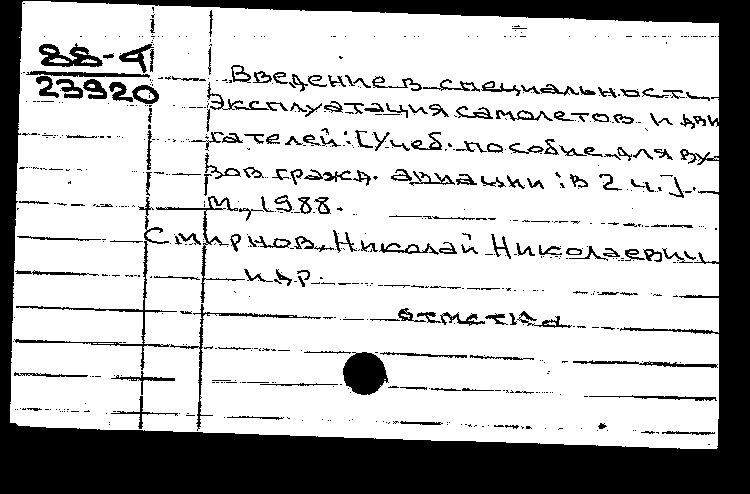 88-4
23920
Введение в специальность
эксплуатация самолетов и дви
гателей: [Учеб. пособие для ву-
зов гражд. авиации: в 2 ч.]. -
М., 1988.
Смирнов, Николай Николаевич
и др.